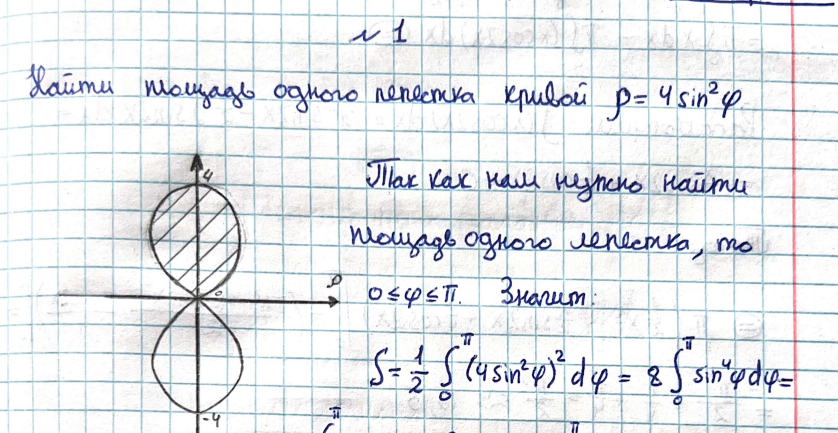 № 1
Найти площадь одного лепестка кривой ρ = 4 sin²φ
4
Так как нам нужно найти
площадь одного лепестка, то
0
ρ
0 ≤ φ ≤ π. Значит:
S = 1/2 ∫₀^π (4 sin²φ)² dφ = 8 ∫₀^π sin⁴φ dφ =
-4